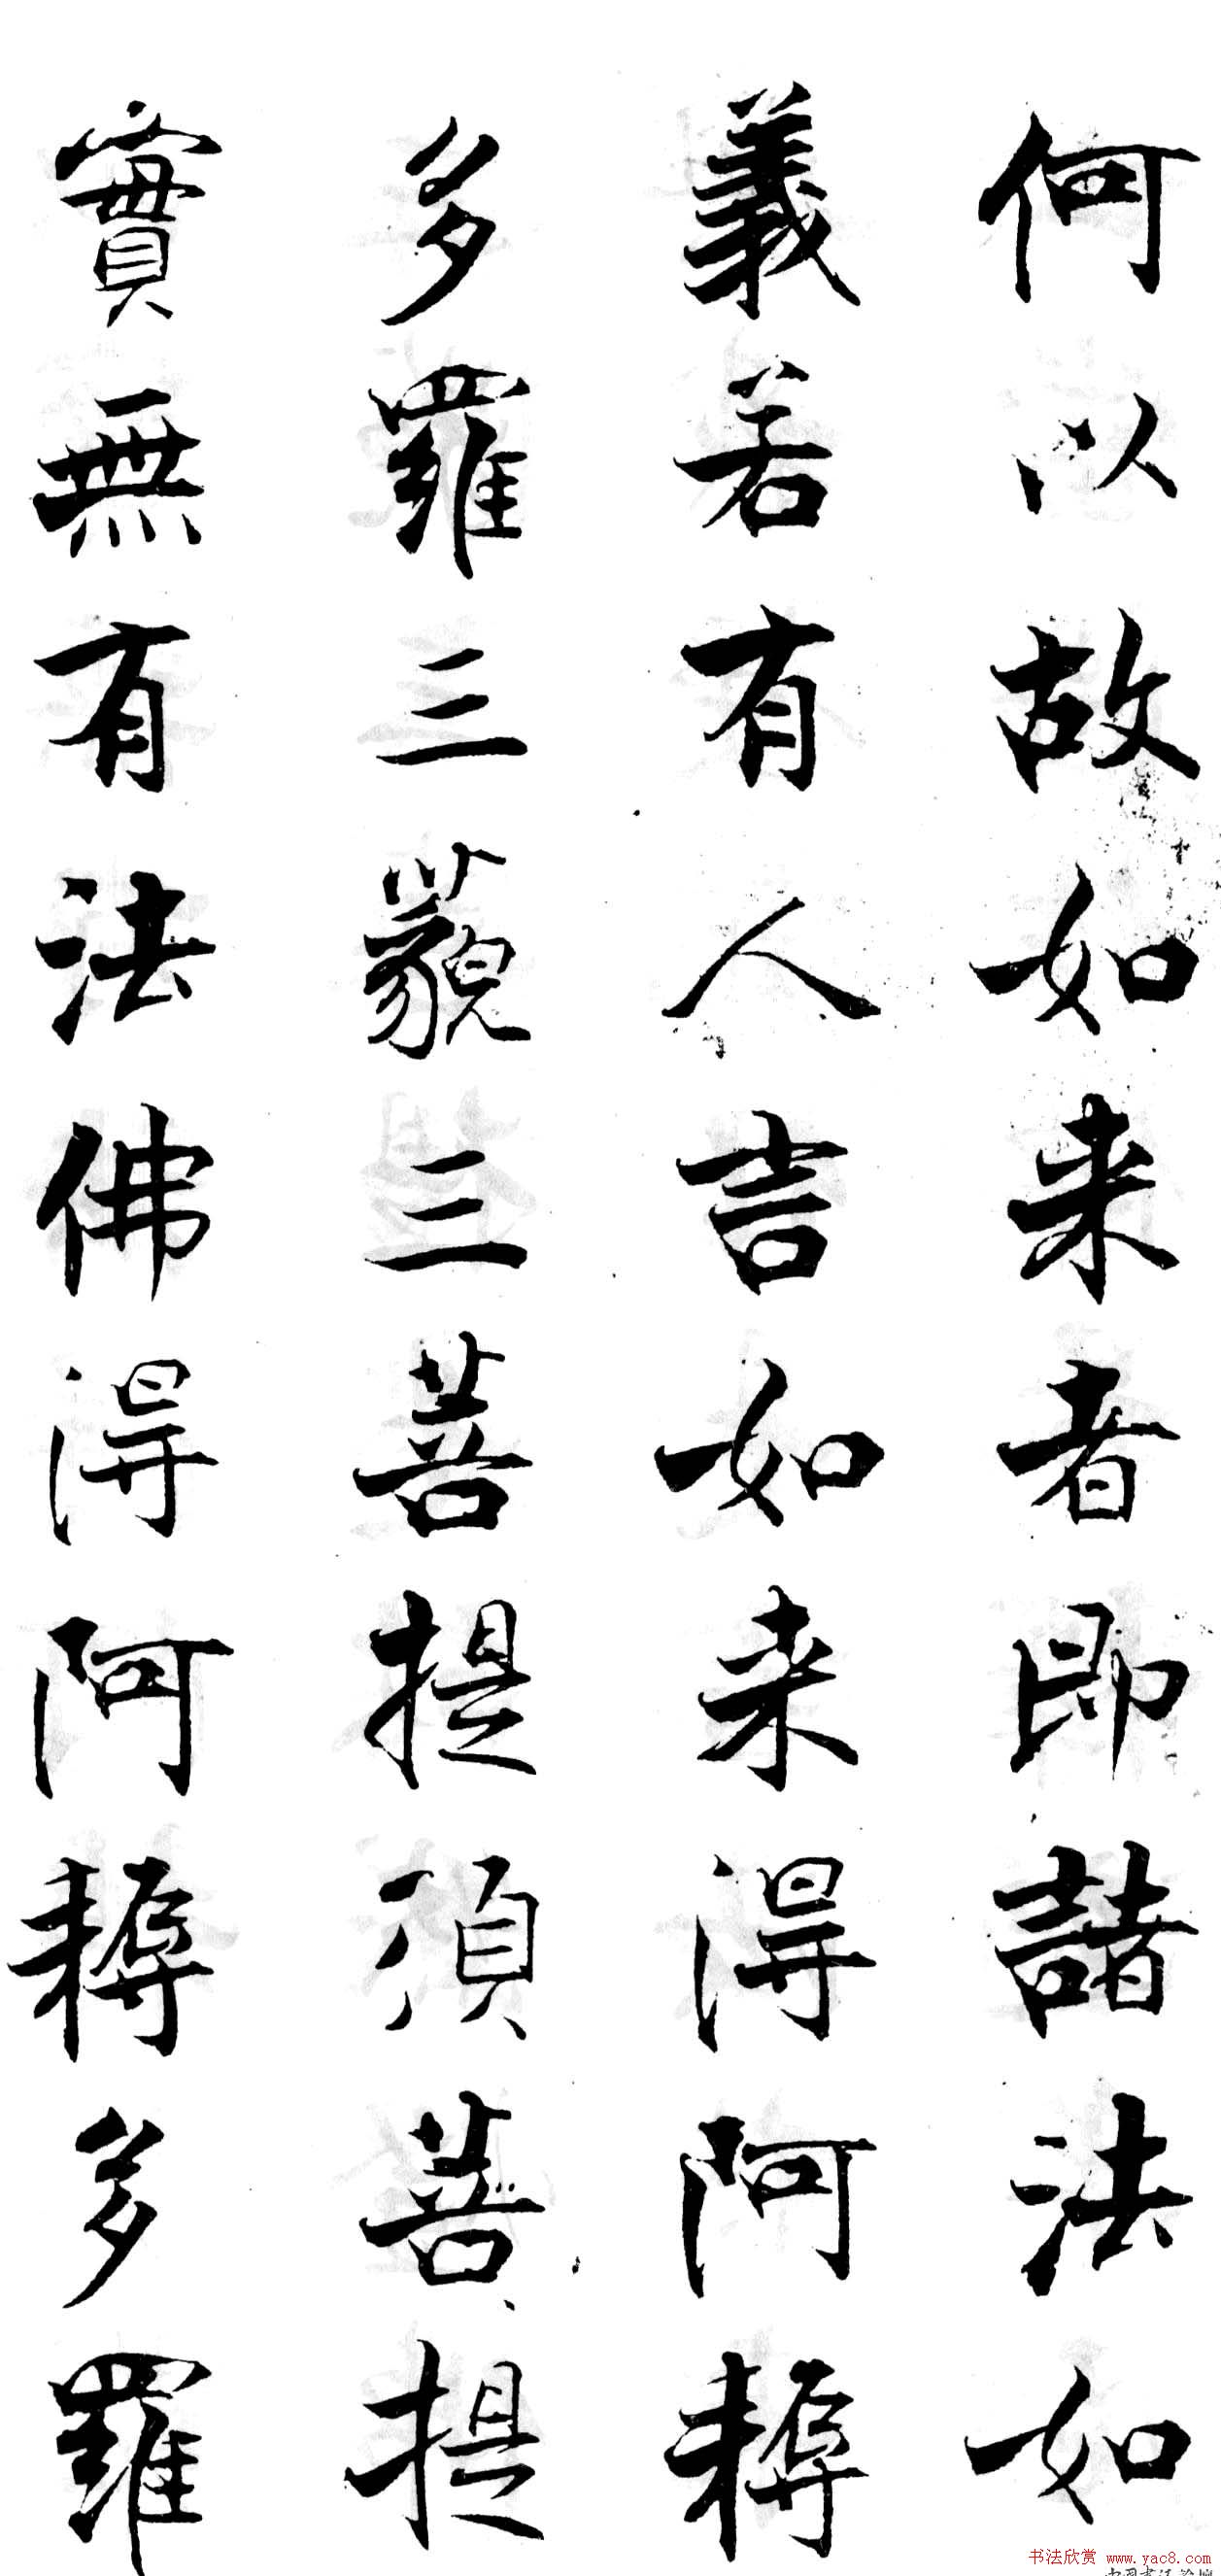 何以故如来者即諸法如
義若有人言如来得阿耨
多羅三藐三菩提須菩提
實無有法佛得阿耨多羅
书法欣赏 www.yac8.com